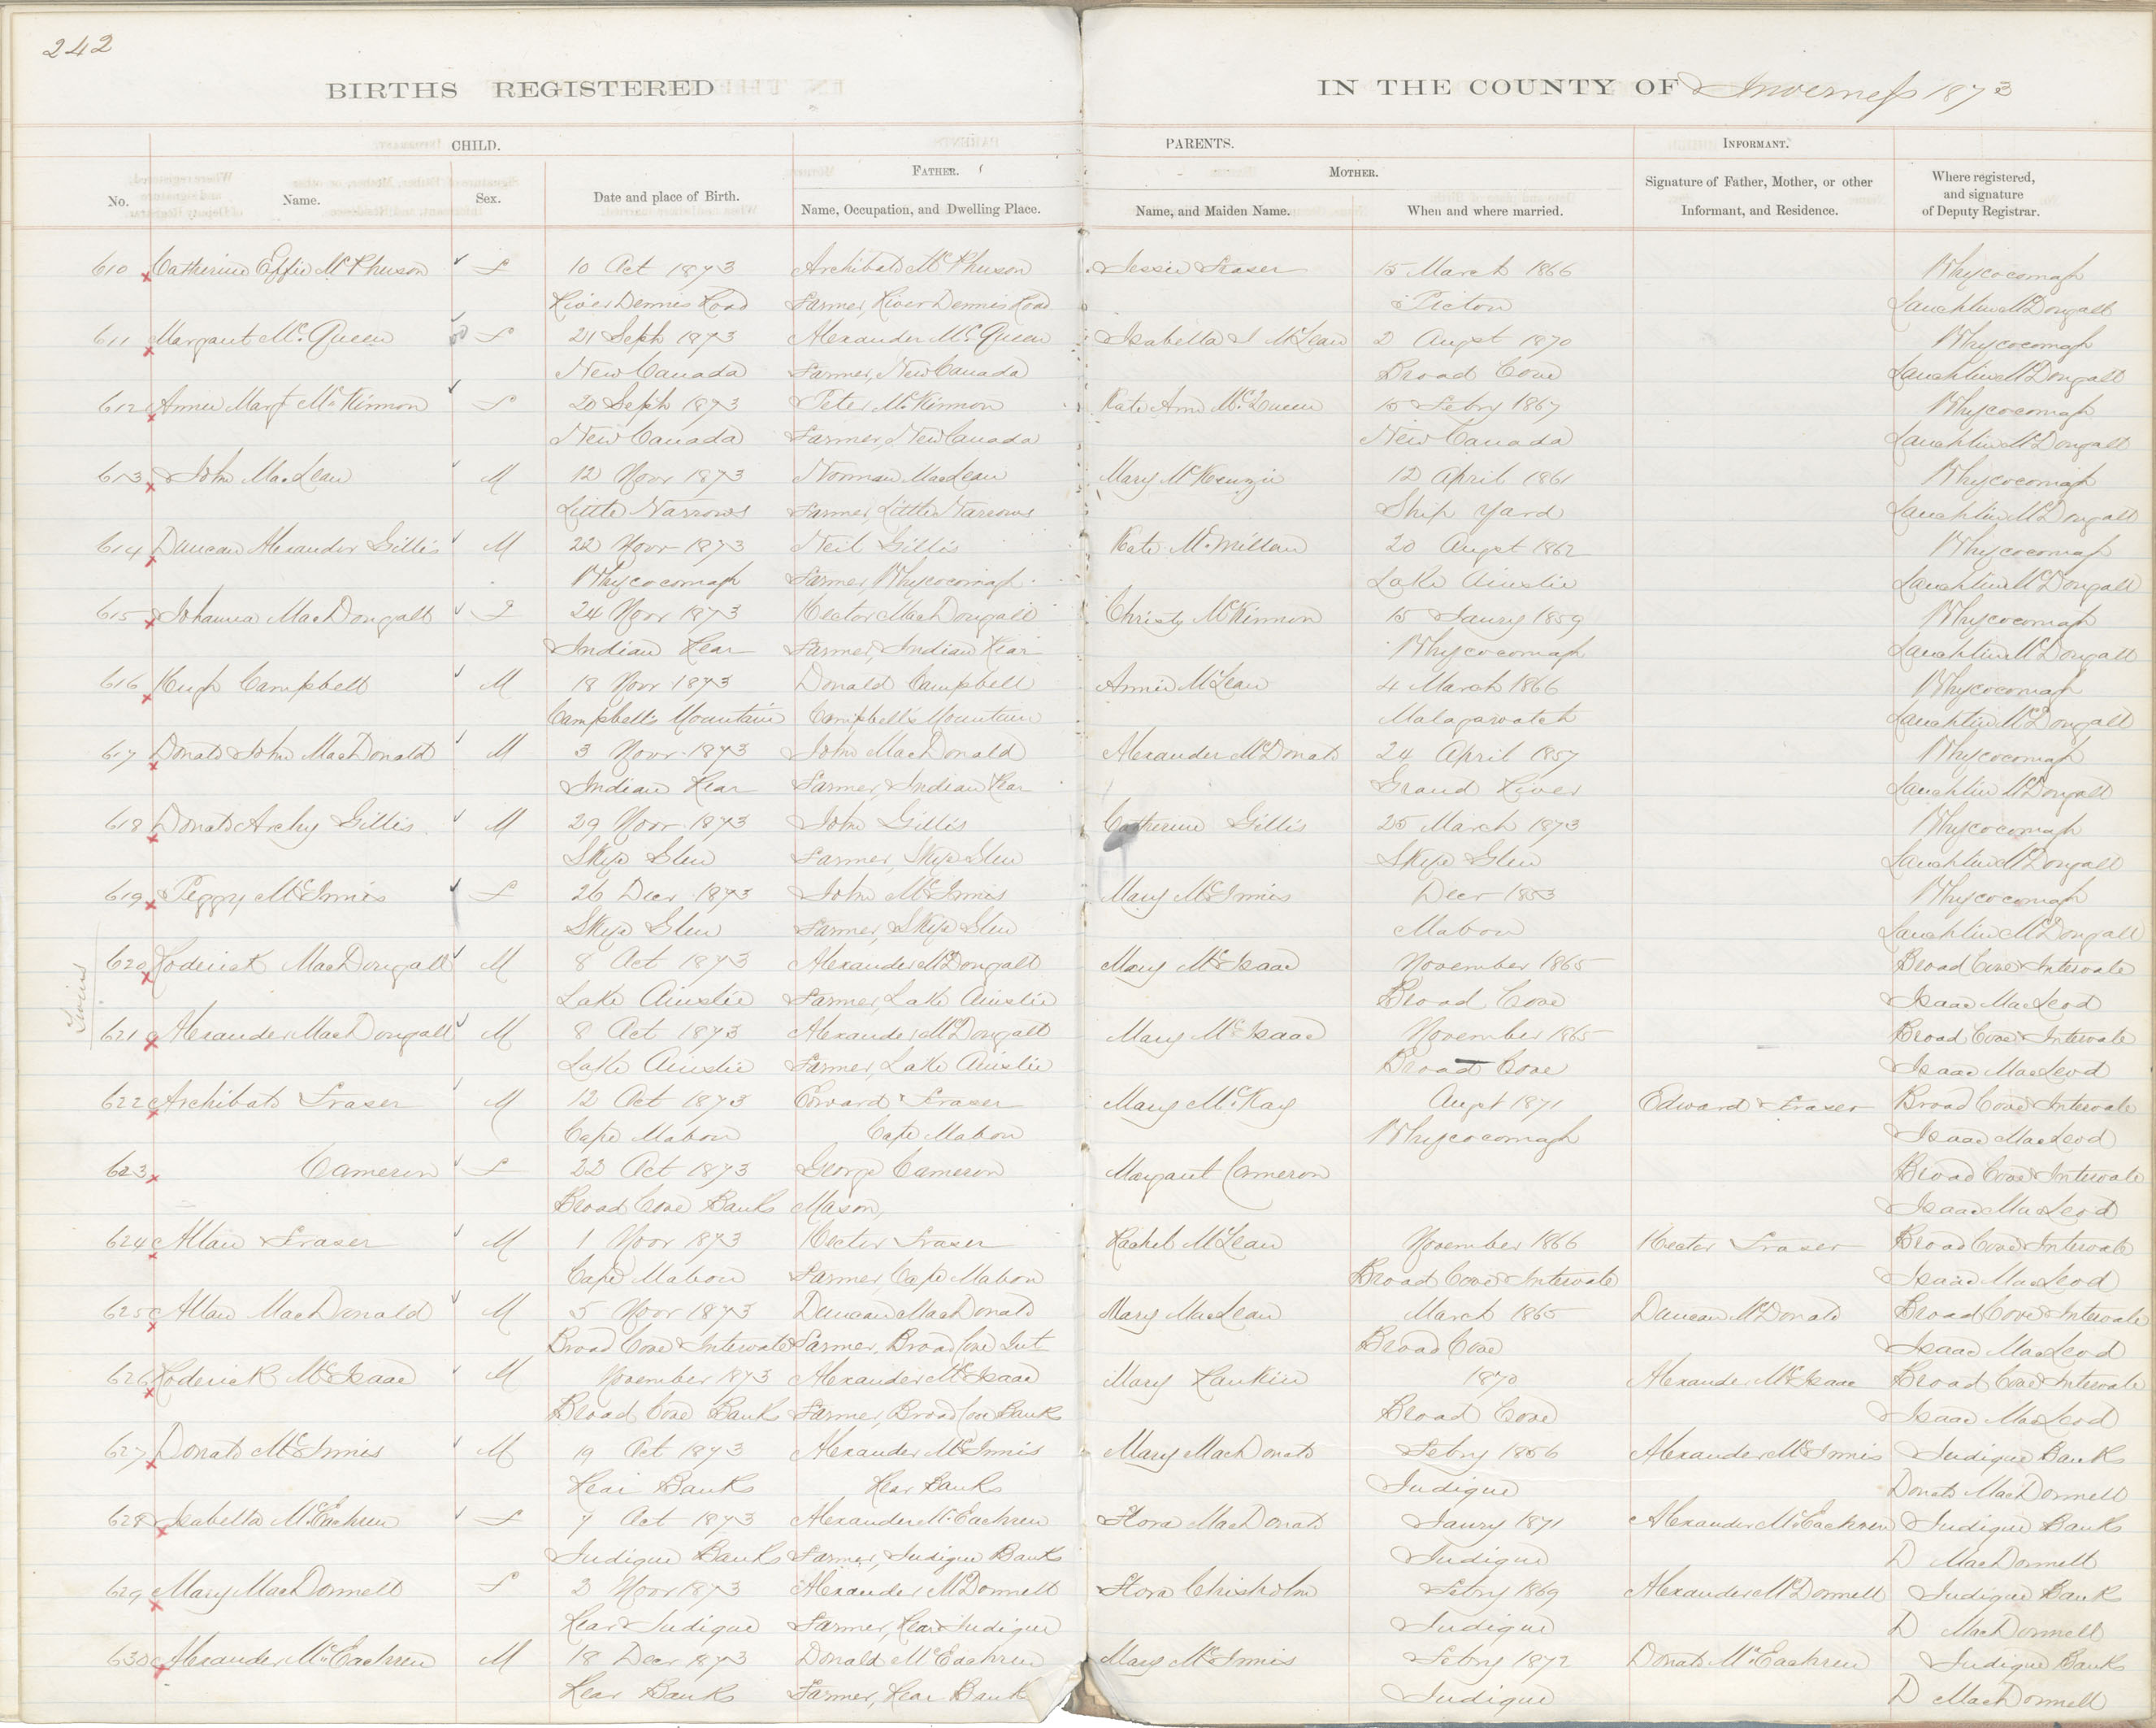 242
BIRTHS REGISTERED IN THE COUNTY OF Inverness 1873
CHILD. PARENTS. INFORMANT.
FATHER. MOTHER.
No. Name. Sex. Date and place of Birth. Name, Occupation, and Dwelling Place. Name, and Maiden Name. When and where married. Signature of Father, Mother, or other Informant, and Residence. Where registered, and signature of Deputy Registrar.
610 Catherine Effie McPherson F 10 Oct 1873 Archibald McPherson Jessie Fraser 15 March 1866 Whycocomagh
River Dennis Road Farmer, River Dennis Road Picton Lauchlin McDougall
611 Margaret McQueen F 21 Sept 1873 Alexander McQueen Isabella J McLean 2 Augst 1870 Whycocomagh
New Canada Farmer, New Canada Broad Cove Lauchlin McDougall
612 Annie Margt McKinnon F 20 Sept 1873 Peter McKinnon Kate Ann McQueen 15 Febry 1867 Whycocomagh
New Canada Farmer, New Canada New Canada Lauchlin McDougall
613 John MacLean M 12 Novr 1873 Norman MacLean Mary McKenzie 12 April 1861 Whycocomagh
Little Narrows Farmer, Little Narrows Ship Yard Lauchlin McDougall
614 Duncan Alexander Gillis M 22 Novr 1873 Neil Gillis Kate McMillan 20 Augst 1862 Whycocomagh
Whycocomagh Farmer, Whycocomagh Lake Ainslie Lauchlin McDougall
615 Johanna MacDougall F 24 Novr 1873 Hector MacDougall Christy McKinnon 15 Janry 1859 Whycocomagh
Indian Rear Farmer, Indian Rear Whycocomagh Lauchlin McDougall
616 Hugh Campbell M 18 Novr 1873 Donald Campbell Annie McLean 4 March 1866 Whycocomagh
Campbell's Mountain Campbell's Mountain Malagawatch Lauchlin McDougall
617 Donald John MacDonald M 3 Novr 1873 John MacDonald Alexander McDonald 24 April 1857 Whycocomagh
Indian Rear Farmer, Indian Rear Grand River Lauchlin McDougall
618 Donald Archy Gillis M 29 Novr 1873 John Gillis Catherine Gillis 25 March 1873 Whycocomagh
Skye Glen Farmer, Skye Glen Skye Glen Lauchlin McDougall
619 Peggy McInnis F 26 Decr 1873 John McInnis Mary McInnis Decr 1853 Whycocomagh
Skye Glen Farmer, Skye Glen Mabou Lauchlin McDougall
Twins
620 Roderick MacDougall M 8 Oct 1873 Alexander McDougall Mary McIsaac November 1865 Broad Cove Intervale
Lake Ainslie Farmer, Lake Ainslie Broad Cove Isaac MacLeod
621 Alexander MacDougall M 8 Oct 1873 Alexander McDougall Mary McIsaac November 1865 Broad Cove Intervale
Lake Ainslie Farmer, Lake Ainslie Broad Cove Isaac MacLeod
622 Archibald Fraser M 12 Oct 1873 Edward Fraser Mary McKay Augst 1871 Edward Fraser Broad Cove Intervale
Cape Mabou Cape Mabou Whycocomagh Isaac MacLeod
623 Cameron F 22 Oct 1873 George Cameron Margaret Cameron Broad Cove Intervale
Broad Cove Banks Mason, Isaac MacLeod
624 Allan Fraser M 1 Novr 1873 Hector Fraser Rachel McLean November 1866 Hector Fraser Broad Cove Intervale
Cape Mabou Farmer, Cape Mabou Broad Cove Intervale Isaac MacLeod
625 Allan MacDonald M 5 Novr 1873 Duncan MacDonald Mary MacLean March 1865 Duncan McDonald Broad Cove Intervale
Broad Cove Intervale Farmer, Broad Cove Int Broad Cove Isaac MacLeod
626 Roderick McIsaac M November 1873 Alexander McIsaac Mary Rankin 1870 Alexander McIsaac Broad Cove Intervale
Broad Cove Banks Farmer, Broad Cove Banks Broad Cove Isaac MacLeod
627 Donald McInnis M 19 Oct 1873 Alexander McInnis Mary MacDonald Febry 1856 Alexander McInnis Judique Banks
Rear Banks Rear Banks Judique Donald MacDonnell
628 Isabella McEachren F 7 Oct 1873 Alexander McEachren Flora MacDonald Janry 1871 Alexander McEachren Judique Banks
Judique Banks Farmer, Judique Banks Judique D MacDonnell
629 Mary MacDonnell F 2 Novr 1873 Alexander McDonnell Flora Chisholm Febry 1869 Alexander McDonnell Judique Bank
Rear Judique Farmer, Rear Judique Judique D MacDonnell
630 Alexander McEachren M 18 Decr 1873 Donald McEachren Mary McInnis Febry 1872 Donald McEachren Judique Banks
Rear Banks Farmer, Rear Bank Judique D MacDonnell